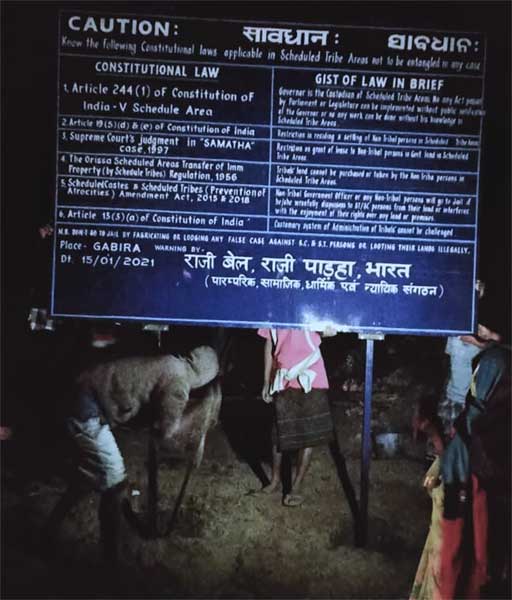 CAUTION: सावधान: ସାବଧାନ:
Know the following Constitutional laws applicable in Scheduled Tribe Areas not to be entangled in any case
CONSTITUTIONAL LAW
GIST OF LAW IN BRIEF
1. Article 244(1) of Constitution of
India - V Schedule Area
Governor is the Custodian of Scheduled Tribe Areas. No any Act passed
by Parliament or Legislature can be implemented without public notification
of the Governor or no any work can be done without his knowledge in
Scheduled Tribe Area.
2. Article 19(5)(d) & (e) of Constitution of India
Restriction in residing & settling of Non Tribal persons in Scheduled Tribe Areas
3. Supreme Court's judgment in "SAMATHA"
case, 1997
Restriction on grant of lease to Non-Tribal persons in Govt. land in Scheduled
Tribe Areas.
4. The Orissa Scheduled Areas Transfer of Imm
Property (by Schedule Tribes) Regulation, 1956
Tribals' land cannot be purchased or taken by the Non Tribe persons in
Scheduled Tribe Areas.
5. Scheduled Castes & Scheduled Tribes (Prevention of
Atrocities) Amendment Act, 2015 & 2018
Non Tribal Government Officer or any Non-Tribal persons will go to Jail if
he/she wrongfully disposes to ST/SC persons from their land or interferes
with the enjoyment of their rights over any land or premises.
6. Article 13(3)(a) of Constitution of India
Customary system of Administration of Tribals cannot be challenged
N.B. DON'T GO TO JAIL BY FABRICATING OR LODGING ANY FALSE CASE AGAINST S.C. & S.T. PERSONS OR LOOTING THEIR LANDS ILLEGALLY.
Place- GABIRA WARNING BY-
Dt. 15/01/2021
राजी बेल, राजी पाड़हा, भारत
(पारम्परिक, सामाजिक, धार्मिक एवं न्यायिक संगठन)